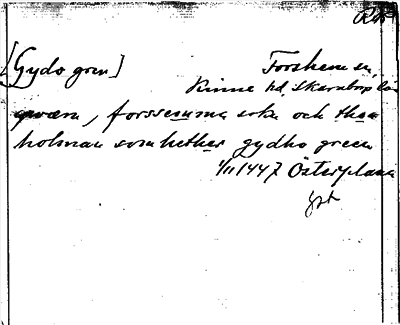 RAP
[Gydo gren] Forshem sn,
Kinne hd, Skarab. län
qwærn, forssemma sokn och then
holman som hether gydho green
1/11 1447 Österplana